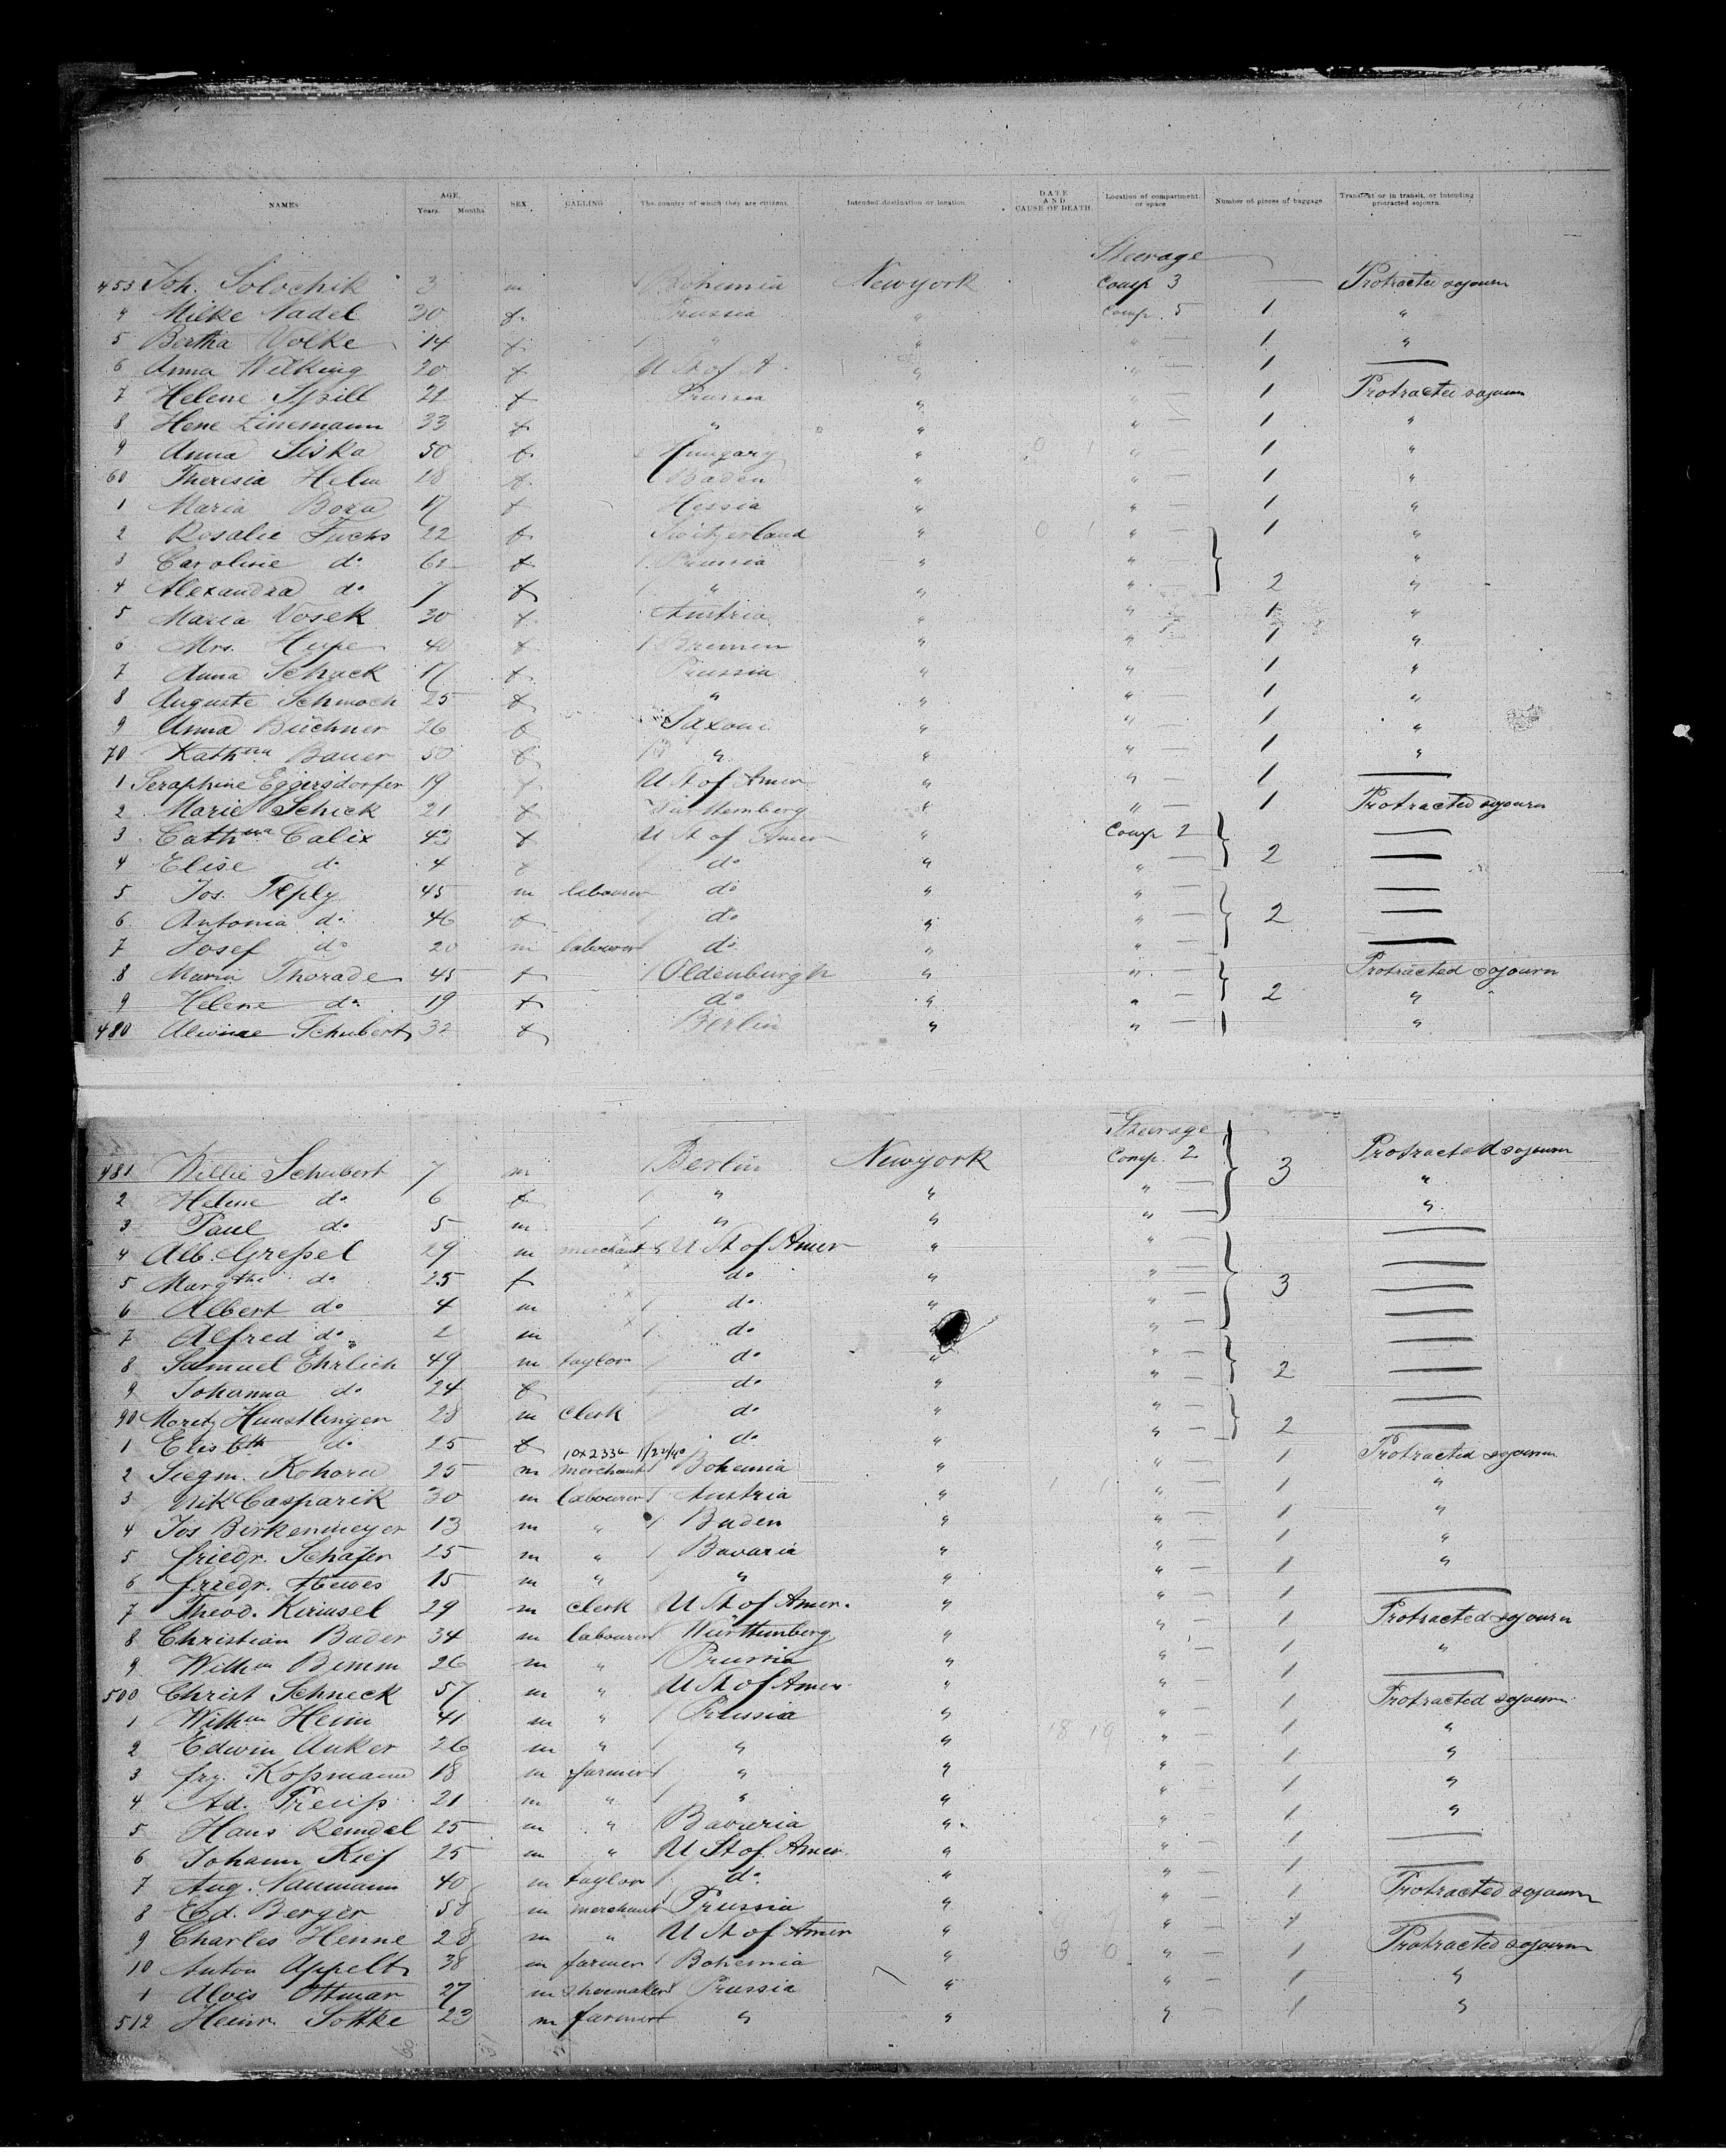 NAMES AGE, Years. Months SEX CALLING The country of which they are citizens. Intended destination or location. DATE AND CAUSE OF DEATH. Location of compartment or space Number of pieces of baggage. Transient or in transit, or intending protracted sojourn.
Steerage
453 Joh. Solochik 3 m Bohemia Newyork Comp 3 — Protracted sojourn
4 Milke Nadel 30 f. Prussia " Comp. 5 1 "
5 Bertha Wolke 14 f " " " — 1 "
6 Anna Wilking 20 f U St of A. " " — 1 —
7 Helene Spill 21 f Prussia " " — 1 Protracted sojourn
8 Hene Linemann 33 f " " " — 1 "
9 Anna Siska 50 f. Hungary " " — 1 "
60 Theresia Helm 18 f. Baden " " — 1 "
1 Maria Bora 17 f Hessia " " — 1 "
2 Rosalie Fuchs 22 f Switzerland " " — 1 "
3 Caroline do 61 f Prussia " " — "
4 Alexandra do 7 f " " " — 2 "
5 Maria Vosek 30 f. Austria " " — 1 "
6 Mrs. Hupe 40 f Bremen " " — 1 "
7 Anna Schack 17 f. Prussia " " — 1 "
8 Auguste Schmoch 25 f " " " — 1 "
9 Anna Büchner 26 f Saxoni " " — 1 "
70 Kathna Bauer 50 f " " " — 1 "
1 Seraphine Eggersdorfer 19 f U St of Amer " " — 1 —
2 Marie Schick 21 f Württemberg " " — 1 Protracted sojourn
3 Cathna Calix 43 f U St of Amer " Comp 2 —
4 Elise do 4 f do " " — 2 —
5 Jos. Teply 45 m labourer do " " — —
6 Antonia do 46 f do " " — 2 —
7 Josef do 20 m labourer do " " — —
8 Maria Thorade 45 f Oldenburgh " " — Protracted sojourn
9 Helene do 19 f do " " — 2 "
480 Alwine Schubert 32 f Berlin " " — "
Steerage
481 Willie Schubert 7 m Berlin Newyork Comp. 2 3 Protracted sojourn
2 Helene do 6 f " " " — "
3 Paul do 5 m " " " — "
4 Alb. Greßel 29 m merchant U St of Amer " " — —
5 Margthe do 25 f do " " — —
6 Albert do 4 m do " " — 3 —
7 Alfred do 2 m do " — —
8 Samuel Ehrlich 49 m taylor do " " — —
9 Johanna do 24 f do " " — 2 —
90 Moritz Hunstlinger 28 m clerk do " " — —
1 Elisbth do 25 f do " " — 2 —
10x2336 1/22/40
2 Siegm. Kohora 25 m merchant Bohemia " " — 1 Protracted sojourn
3 Nik Casparik 30 m labourer Austria " " — 1 "
4 Jos Birkenmeyer 13 m " Baden " " — 1 "
5 friedr. Schäfer 25 m " Bavaria " " — 1 "
6 friedr. Hewes 15 m " " " " — 1 "
7 Theod. Kirinsel 29 m clerk U St of Amer. " " — 1 —
8 Christian Bader 34 m labourer Württemberg " " — 1 Protracted sojourn
9 Wilhm Bimm 26 m " Prussia " " — 1 "
500 Christ Schneck 57 m " U St of Amer " " — 1 —
1 Wilhm Heim 41 m " Prussia " " — 1 Protracted sojourn
2 Edwin Anker 26 m " " " " — 1 "
3 frz. Koßmann 18 m farmer " " " — 1 "
4 Ad. Preuß 21 m " " " " — 1 "
5 Hans Remdel 25 m " Bavaria " " — 1 "
6 Johann Kief 25 m " U St of Amer. " " — 1 —
7 Aug. Naumann 40 m taylor do " " — 1 —
8 Ed. Berger 58 m merchant Prussia " " — 1 Protracted sojourn
9 Charles Henne 28 m " U St of Amer " " — 1 —
10 Anton Appelt 38 m farmer Bohemia " " — 1 Protracted sojourn
1 Alois Ottmar 27 m shoemaker Prussia " " — 1 "
512 Heinr. Sottke 23 m farmer " " " — 1 "